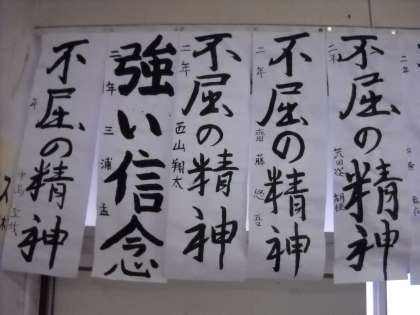 不屈の精神
二年
不屈の精神
二年 齋藤悠吾
不屈の精神
二年 西山翔太
強い信念
二年 三浦孟
不屈の精神